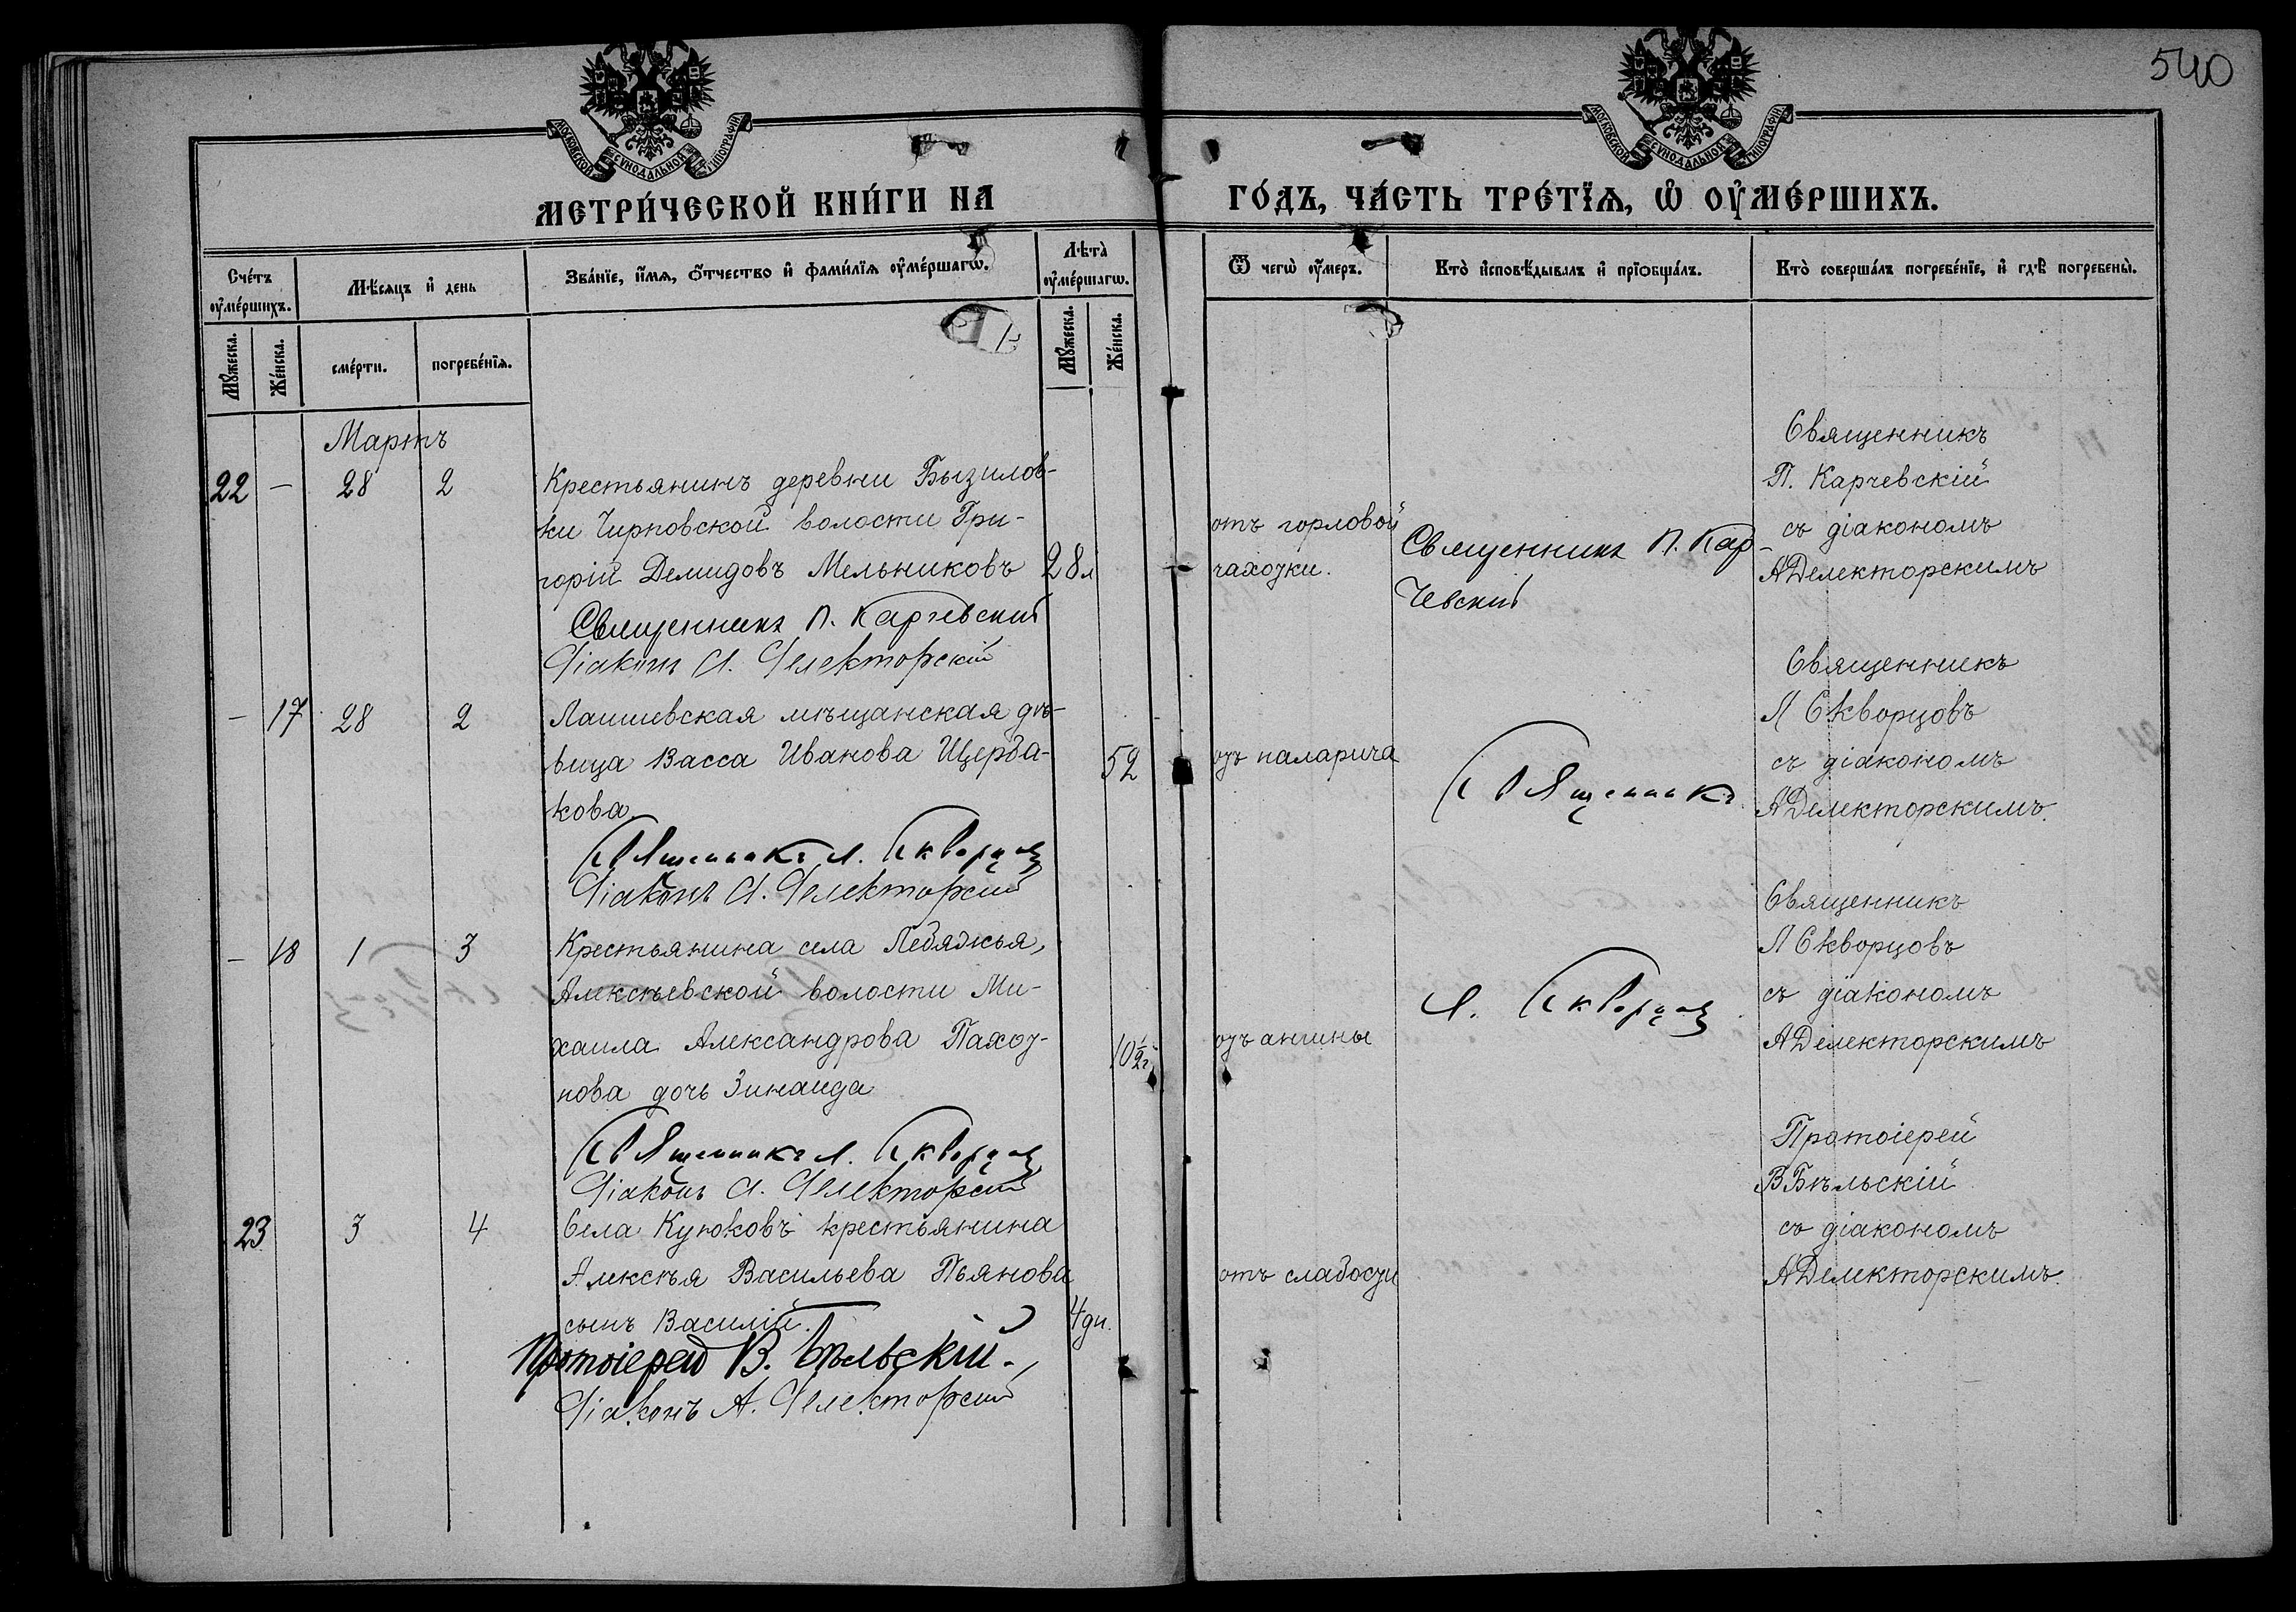 540
МОСКОВСКОЙ СУНОДАЛЬНОЙ ТИПОГРАФІИ
МОСКОВСКОЙ СУНОДАЛЬНОЙ ТИПОГРАФІИ
МЕТРИ́ЧЕСКОЙ КНИ́ГИ НА ГО́ДЪ, ЧА́СТЬ ТРЕ́ТЇѦ, Ѡ ОУМЕ́РШИХЪ.
Сче́тъ оумéршихъ.
Мѣ́сяцъ и день
Зва́нїе, и́мя, о́тчество и фами́лїя оуме́ршагѡ.
Лѣта̀ оуме́ршагѡ.
Ѿ чегѡ̀ оу́меръ.
Кто̀ исповѣ́дывалъ и прїобща́лъ.
Кто̀ соверша́лъ погребе́нїе, и гдѣ̀ погребены̀.
Мꙋжеска.
Же́нска.
сме́рти.
погребе́нїя.
Мꙋжеска.
Же́нска.
Мартъ
22 — 28 2
Крестьянинъ деревни Бызилов-
ки Чирповской волости Гри-
горій Демидовъ Мельниковъ 28 л
Священникъ П. Карчевскій
Діаконъ А. Делекторскій
отъ горловой
чахотки.
Священникъ П. Кар-
чевскій
Священникъ
П. Карчевскій
съ діакономъ
А Делекторскимъ
— 17 28 2
Лаишевская мѣщанская дѣ-
вица Васса Иванова Щерба- 52
кова.
Священникъ Л. Скворцовъ
Діаконъ А. Делекторскій
отъ паралича
Священникъ
Священникъ
Л Скворцовъ
съ діакономъ
А Делекторскимъ.
— 18 1 3
Крестьянина села Лебяжья,
Алексѣевской волости Ми-
хаила Александрова Пахоу-
нова дочь Зинаида
10 1/2 г
Священникъ Л. Скворцовъ
Діаконъ А. Делекторскій
отъ ангины
Л. Скворцовъ
Священникъ
Л Скворцовъ
съ діакономъ
А Делекторскимъ
23 3 4
Села Куюковъ крестьянина
Алексѣя Васильева Пьянова
сынъ Василій. 4 дн.
Протоіерей В. Бѣльскій.
Діаконъ А. Делекторскій
отъ слабости
Протоіерей
В Бѣльскій
съ діакономъ
А Делекторскимъ.